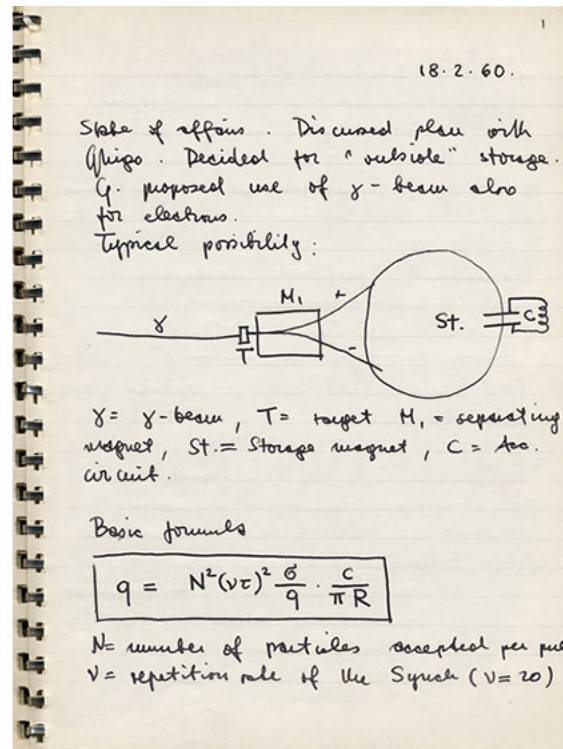 1
18.2.60.
State of affairs. Discussed plan with
Ghigo. Decided for "outside" storage.
G. proposed use of γ-beam also
for electrons.
Typical possibility:
M₁
+
γ
T
-
St.
C
γ = γ-beam, T = target M₁ = separating
magnet, St. = Storage magnet, C = Acc.
circuit.
Basic formula
q = N²(ντ)² σ/q · c/πR
N = number of particles accepted per pul
ν = repetition rate of the Synch (ν = 20)